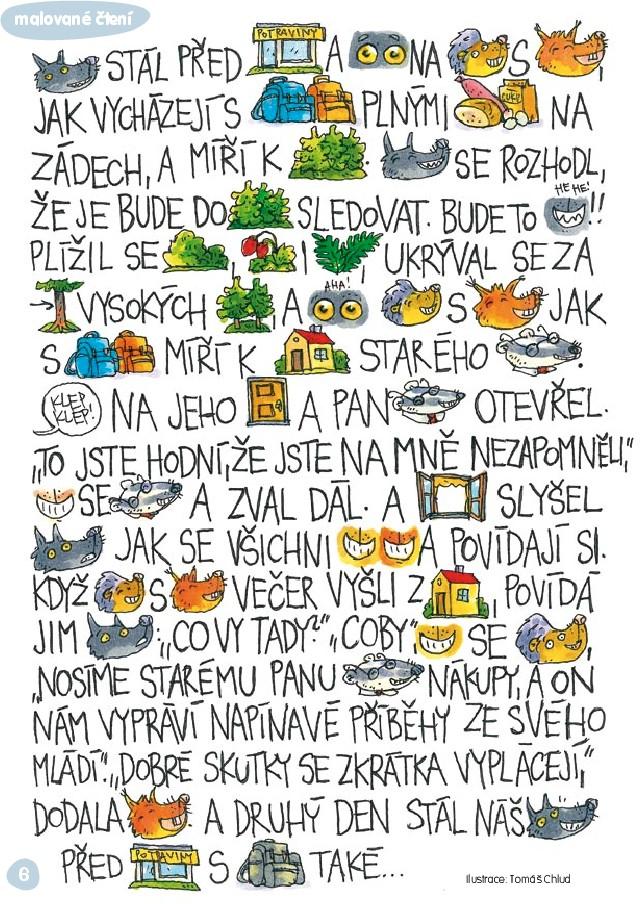 malované čtení
POTRAVINY
STÁL PŘED A NA S ,
JAK VYCHÁZEJÍ S PLNÝMI NA
ZÁDECH, A MÍŘÍ K . SE ROZHODL,
HE HE!
ŽE JE BUDE DO SLEDOVAT. BUDE TO !!
PLÍŽIL SE , I , UKRÝVAL SE ZA
AHA!
VYSOKÝCH , A S JAK
S MÍŘÍ K STARÉHO .
KLEP KLEP! NA JEHO A PAN OTEVŘEL.
„TO JSTE HODNÍ, ŽE JSTE NA MNĚ NEZAPOMNĚLI,“
SE A ZVAL DÁL. A SLYŠEL
JAK SE VŠICHNI A POVÍDAJÍ SI.
KDYŽ S VEČER VYŠLI Z , POVÍDÁ
JIM : „CO VY TADY?“ „COBY“ SE ,
„NOSÍME STARÉMU PANU NÁKUPY, A ON
NÁM VYPRÁVÍ NAPÍNAVÉ PŘÍBĚHY ZE SVÉHO
MLÁDÍ.“ „DOBRÉ SKUTKY SE ZKRÁTKA VYPLÁCEJÍ,“
DODALA A DRUHÝ DEN STÁL NÁŠ
PŘED POTRAVINY S TAKÉ...
6
Ilustrace: Tomáš Chlud